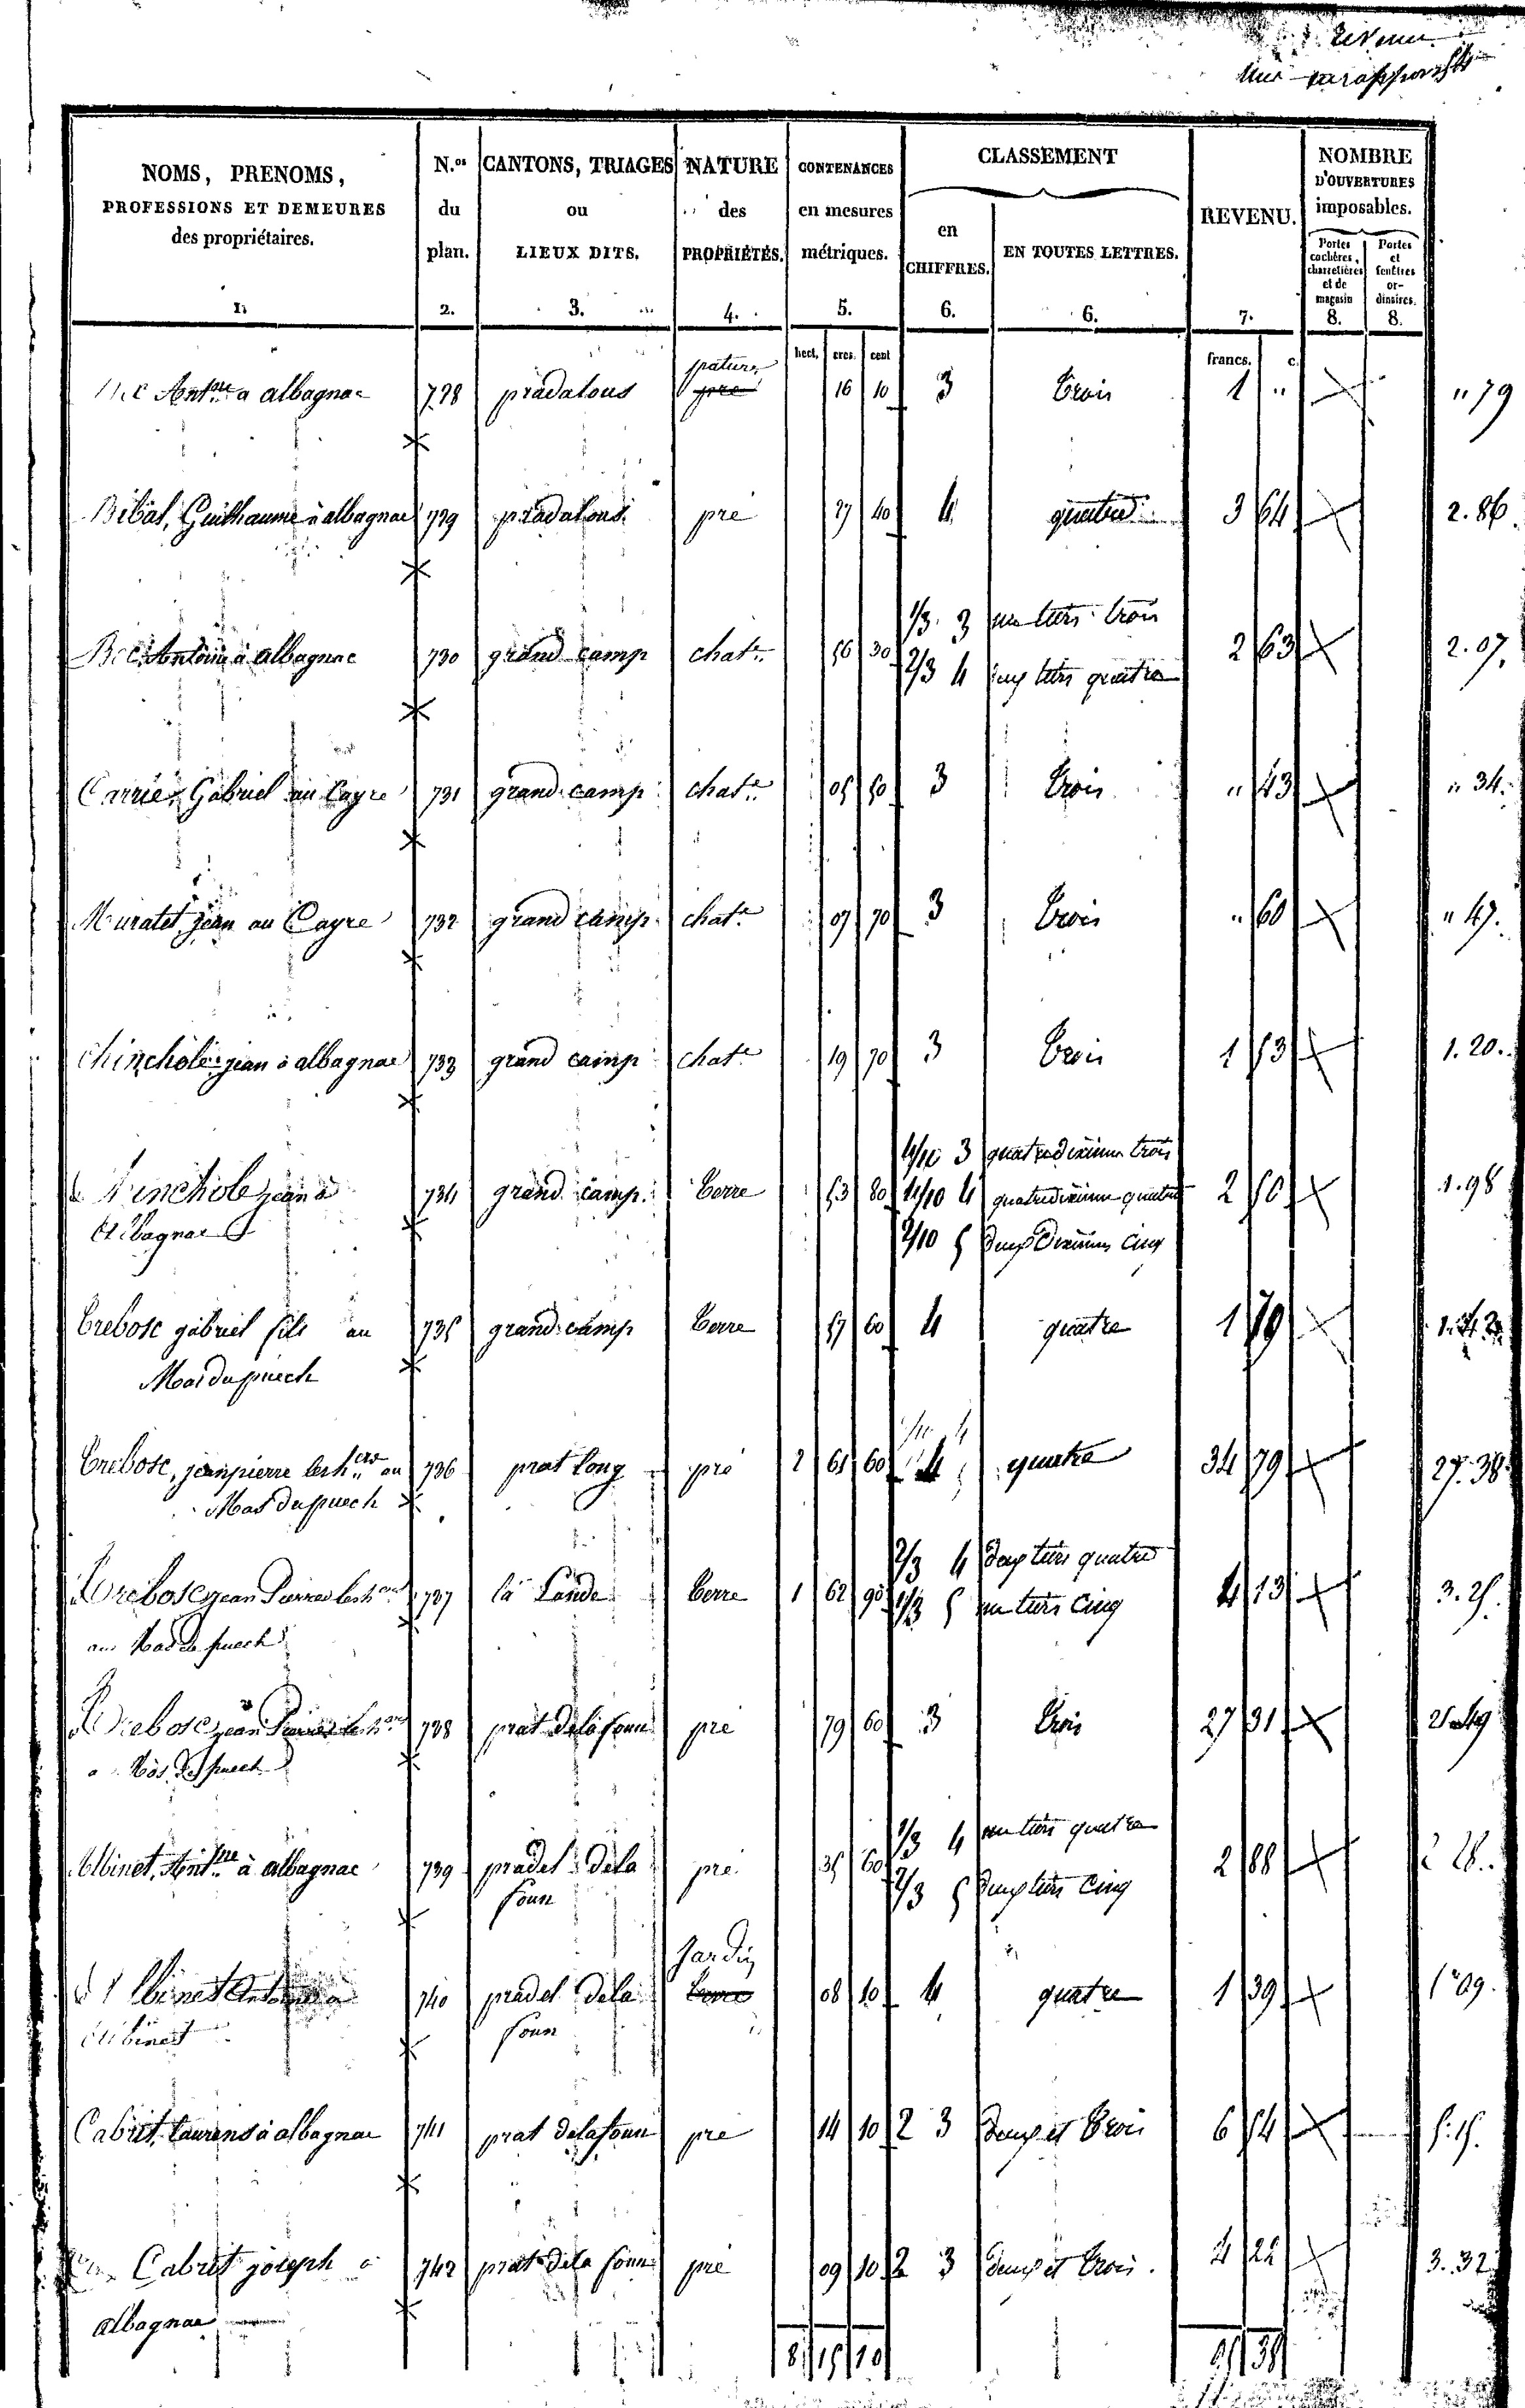 revenu
NOMS, PRENOMS, PROFESSIONS ET DEMEURES des propriétaires. 1.
N.os du plan. 2.
CANTONS, TRIAGES ou LIEUX DITS. 3.
NATURE des PROPRIÉTÉS. 4.
CONTENANCES en mesures métriques. 5.
CLASSEMENT
en CHIFFRES. 6.
EN TOUTES LETTRES. 6.
REVENU. 7.
NOMBRE D'OUVERTURES imposables.
Portes cochères, charretières et de magasin 8.
Portes et fenêtres ordinaires. 8.
hect. ares. cent francs. c.
pature
Antne a albagnac 728 pradalous pré 16 10 3 trois 1 " " 79
Bibal, Guilhaume à albagnac 729 pradalous pré 27 40 4 quatre 3 64 2.86
1/3 3 un tiers trois
Antoine à albagnac 730 grand camp chatre 56 30 2 63 2.07
2/3 4 deux tiers quatre
Carrié, Gabriel au Cayre 731 grand camp chatre 05 50 3 trois " 43 " 34
Muratet jean au Cayre 732 grand camp chatre 07 70 3 trois " 60 " 47
Chinchole jean à albagnac 733 grand camp chatre 19 70 3 trois 1 53 1.20
4/10 3 quatre dixieme trois
Chinchole jean à 734 grand camp terre 53 80 4/10 4 quatre dixieme quatre 2 50 1.98
Albagnac 2/10 5 deux dixiemes cinq
Trebosc gabriel fils au 735 grand camp terre 57 60 4 quatre 1 79
Mas du puech
Trebosc, jean pierre les hers au 736 prat long pré 2 61 60 4 quatre 34 79 27.38
Mas du puech
2/3 4 deux tiers quatre
Trebosc jean Pierre les hers 737 la Lande terre 1 62 90 4 13 3.25
1/3 5 un tiers cinq
au Mas du puech
Trebosc jean Pierre les hers 738 prat de la foun pré 79 60 3 trois 27 31 21.49
Mas du puech
1/3 4 un tiers quatre
Albinet, Antne à albagnac 739 pradel de la pré 35 60 2 88
foun 2/3 5 deux tiers cinq
Jardin
Albinet 740 pradel de la terre 08 10 4 quatre 1 39 1.09
foun
Cabrit, Laurens à albagnac 741 prat de la foun pré 14 10 2 3 deux et trois 6 54 5.15
Cabrit joseph à 742 prat de la foun pré 09 10 2 3 deux et trois. 4 22 3.32
albagnac
8 15 10